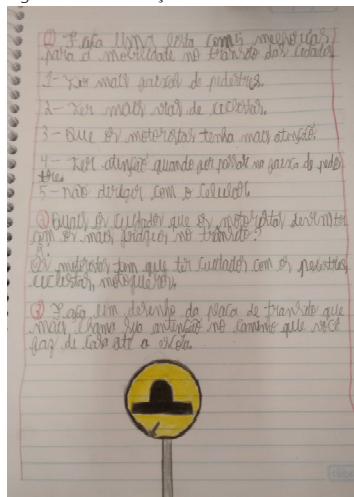 ① Faça uma lista com 5 melhorias
para a mobilidade no trânsito das cidades
1- Ter mais faixas de pedestres.
2- Ter mais vias de ciclistas.
3- Que os motoristas tenha mais atenção.
4- Ter atenção quando por passar na faixa de pedes
tres.
5- não dirigir com o celular.
② Quais os cuidados que os motoristas devem ter
com os mais frágeis no trânsito?
R:
Os motoristas tem que ter cuidados com os pesestres,
ciclistas, motoqueiros.
③ Faça um desenho da placa de transito que
mais chama sua antenção no caminho que você
faz de casa até a escola.